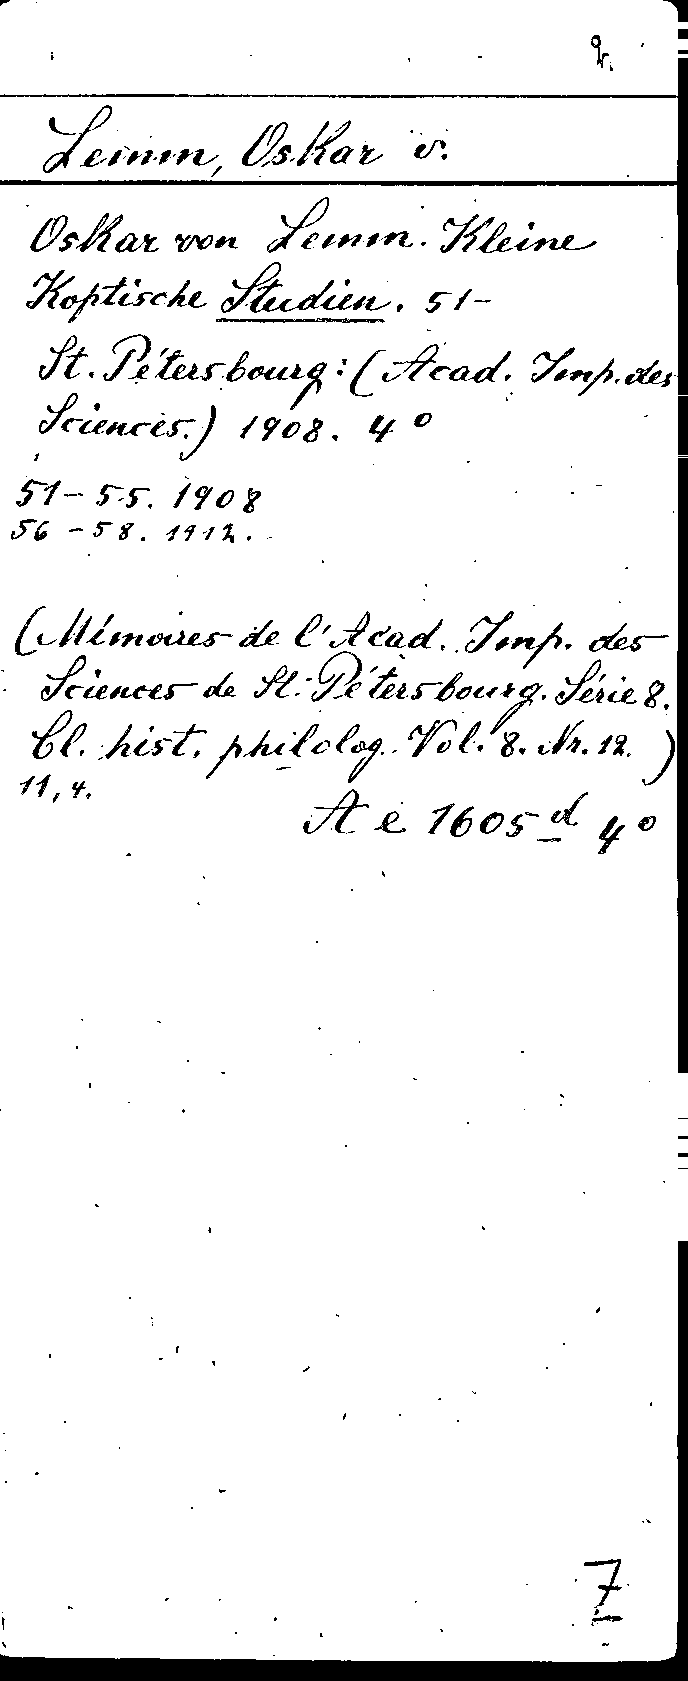 2.
Lemm, Oskar v.
Oskar von Lemm. Kleine
Koptische Studien. 51-
St. Pétersbourg: (Acad. Imp. des
Sciences.) 1908. 4°
51-55. 1908
56-58. 1912.
(Mémoires de l'Acad. Imp. des
Sciences de St. Pétersbourg. Série 8.
Cl. hist. philolog. Vol. 8. Nr. 12. )
11, 4.
Ae 1605 d 4°
Z